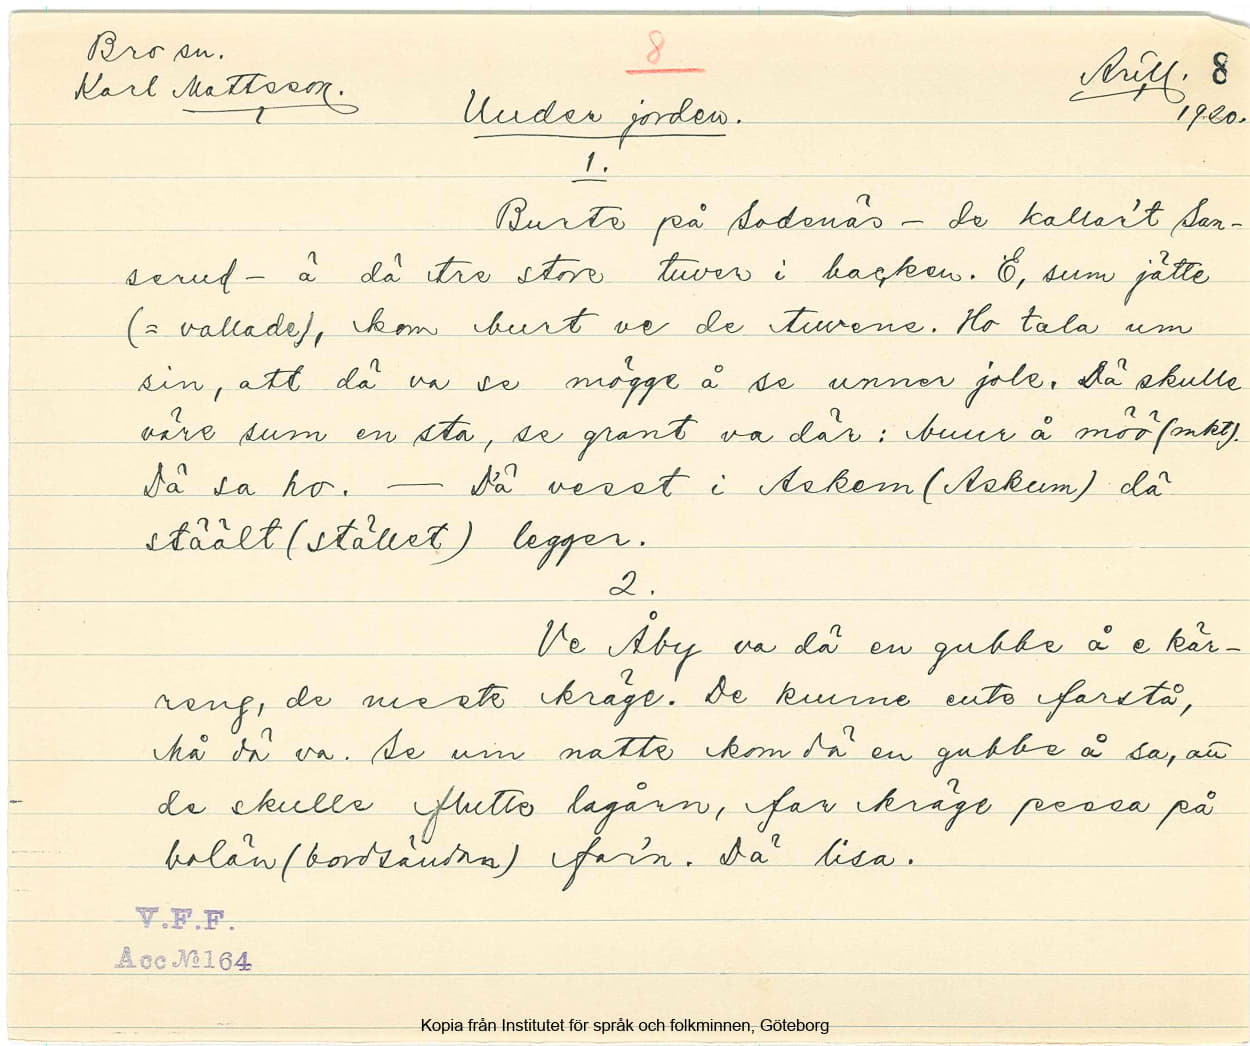 Bro sn.
8
Arill. 8
Karl Mattsson.
1920.
Under jorden.
1.
Burte på Sodenäs – de kallar't San-
serud – ä dä tre store tuver i backen. E, sum jätte
(= vallade), kom burt ve de tuvene. Ho tala um
sin, att dä va se mögge å se unner jole. Dä skulle
väre sum en sta, se grant va där: buur å möö (mkt).
Dä sa ho. — Dä vesst i Askem (Askum) dä
stäält (stället) legger.
2.
Ve Åby va dä en gubbe å e kär-
reng, de meste kräge. De kunne ente farstå,
hå dä va. Se um natte kom dä en gubbe å sa, att
de skulle flutte lagårn, far kräge pessa på
bolän (bordsändan) far'n. Dä lisa.
V.F.F.
Acc № 164
Kopia från Institutet för språk och folkminnen, Göteborg